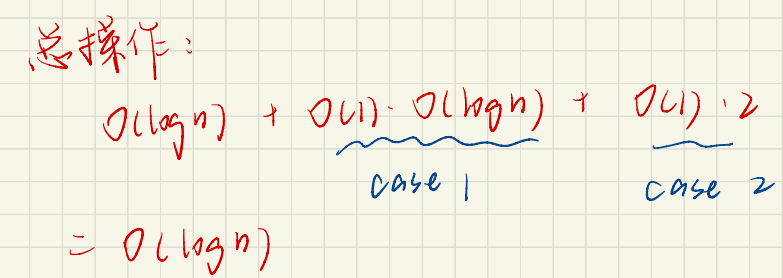 总操作：
O(logn) + O(1)·O(logn) + O(1)·2
case 1 case 2
= O(logn)